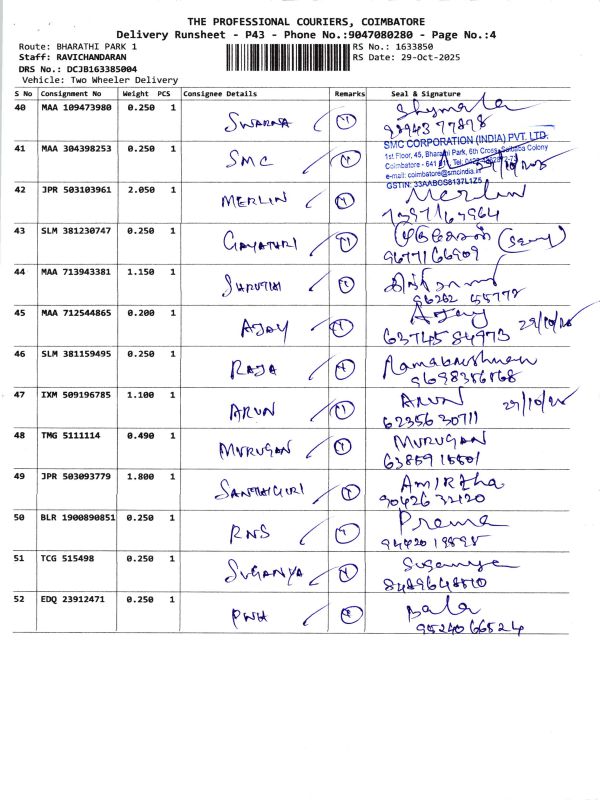 THE PROFESSIONAL COURIERS, COIMBATORE
Delivery Runsheet - P43 - Phone No.:9047080280 - Page No.:4
Route: BHARATHI PARK 1
RS No.: 1633850
Staff: RAVICHANDARAN
RS Date: 29-Oct-2025
DRS No.: DCJB163385004
Vehicle: Two Wheeler Delivery
S No Consignment No Weight PCS Consignee Details Remarks Seal & Signature
40 MAA 109473980 0.250 1 SWARNA Shymala
41 MAA 304398253 0.250 1 SMC
SMC CORPORATION (INDIA) PVT. LTD.
1st Floor, 45, Bharathi Park, 6th Cross, Saibaba Colony
Coimbatore - 641
e-mail: coimbatore@smcindia.in
GSTIN: 33AABGS8137L1Z5
42 JPR 503103961 2.050 1 MERLIN Merlin
43 SLM 381230747 0.250 1 GAYATHRI
9677166909
44 MAA 713943381 1.150 1 SHRUTHI
96262 55772
45 MAA 712544865 0.200 1 AJAY Ajay
63745 84973 29/10/25
46 SLM 381159495 0.250 1 RAJA Ramakrishnan
9698386868
47 IXM 509196785 1.100 1 ARUN ARUN 29/10/25
62356 30711
48 TMG 5111114 0.490 1 MURUGAN MURUGAN
49 JPR 503093779 1.800 1 SANTHIGIRI AMIRtha
90426 32120
50 BLR 1900890851 0.250 1 RNS Prema
51 TCG 515498 0.250 1 SUGANYA Suganya
52 EDQ 23912471 0.250 1 PNH Bala
95240 66524